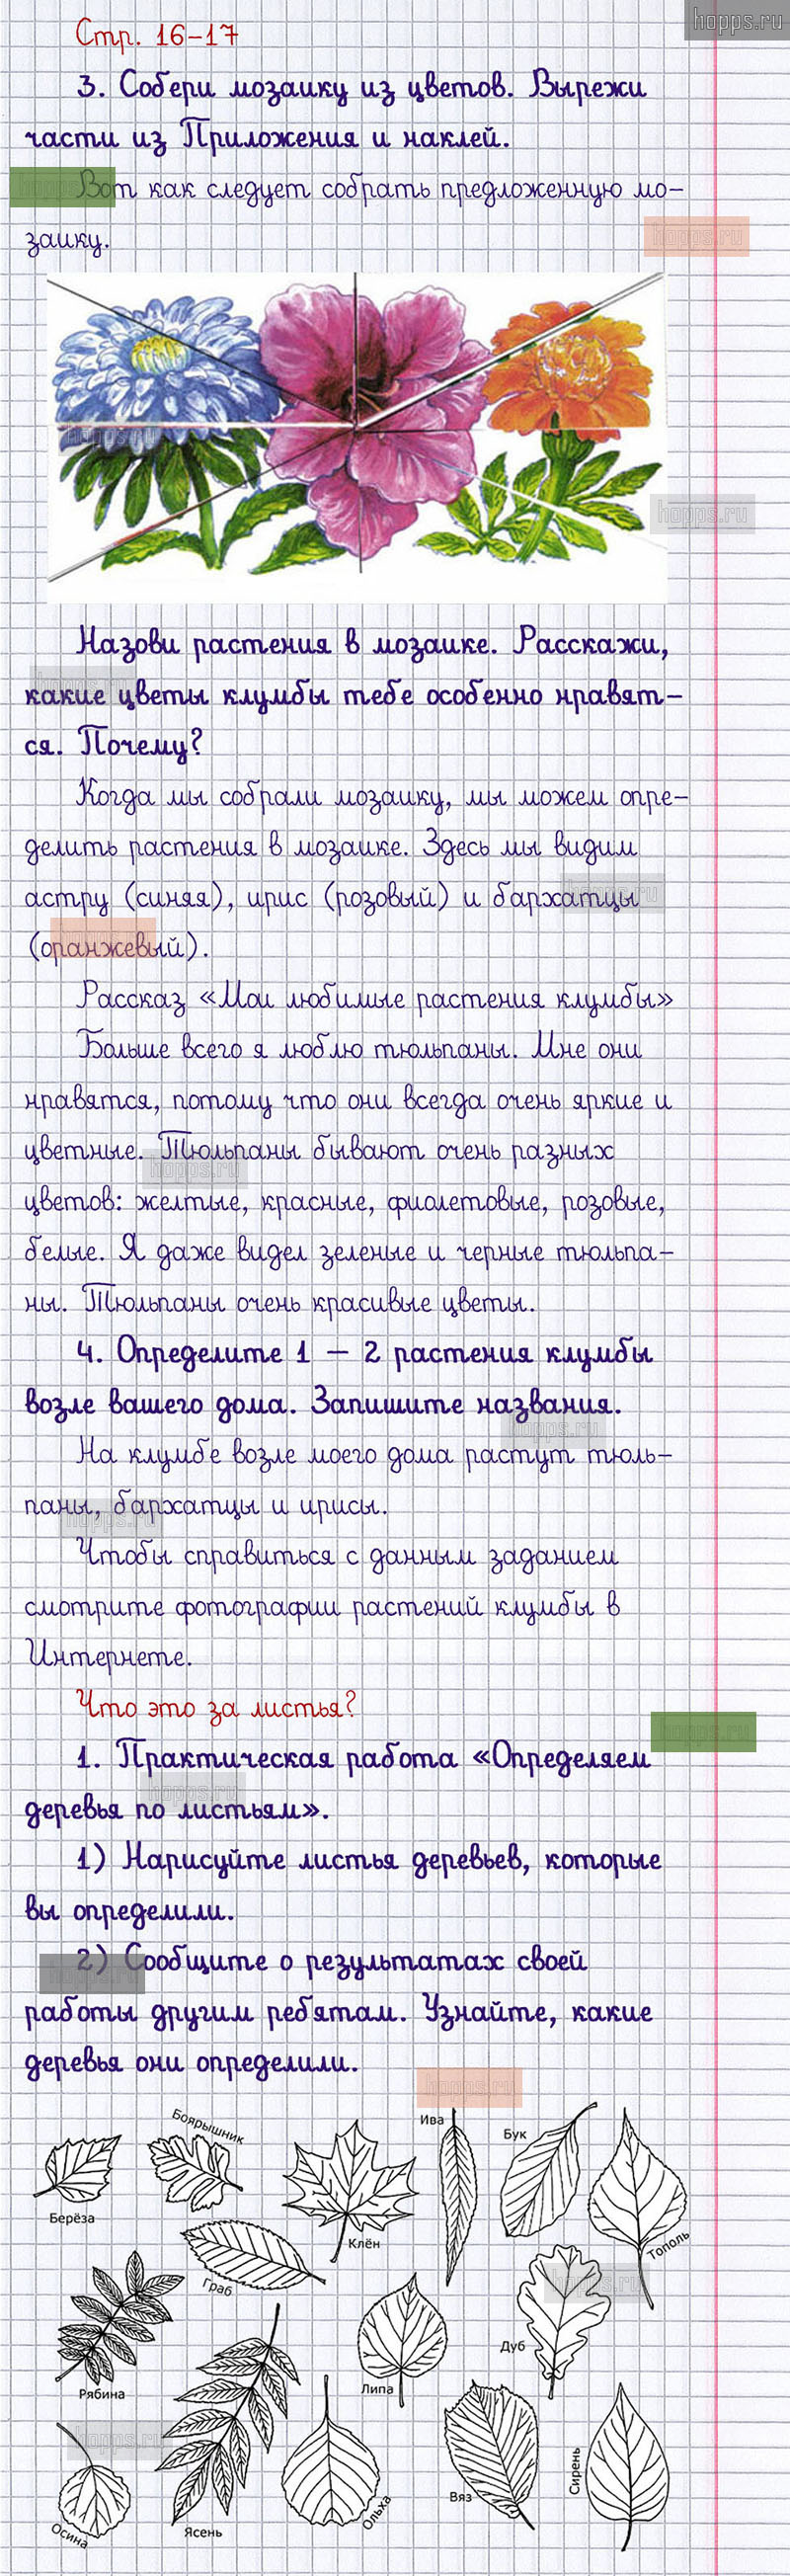 hopps.ru
Стр. 16-17
3. Собери мозаику из цветов. Вырежи
части из Приложения и наклей.
Вот как следует собрать предложенную мо-
заику.
hopps.ru
hopps.ru
hopps.ru
Назови растения в мозаике. Расскажи,
какие цветы клумбы тебе особенно нравят-
ся. Почему?
Когда мы собрали мозаику, мы можем опре-
делить растения в мозаике. Здесь мы видим
астру (синяя), ирис (розовый) и бархатцы
(оранжевый).
Рассказ «Мои любимые растения клумбы»
Больше всего я люблю тюльпаны. Мне они
нравятся, потому что они всегда очень яркие и
цветные. Тюльпаны бывают очень разных
hopps.ru
цветов: желтые, красные, фиолетовые, розовые,
белые. Я даже видел зеленые и черные тюльпа-
ны. Тюльпаны очень красивые цветы.
4. Определите 1 – 2 растения клумбы
возле вашего дома. Запишите названия.
hopps.ru
На клумбе возле моего дома растут тюль-
паны, бархатцы и ирисы.
hopps.ru
Чтобы справиться с данным заданием
смотрите фотографии растений клумбы в
Интернете.
Что это за листья?
hopps.ru
1. Практическая работа «Определяем
hopps.ru
деревья по листьям».
1) Нарисуйте листья деревьев, которые
вы определили.
2) Сообщите о результатах своей
работы другим ребятам. Узнайте, какие
деревья они определили.
hopps.ru
Боярышник
Ива
Бук
Берёза
Клён
Тополь
Граб
hopps.ru
Дуб
Рябина
Липа
hopps.ru
Сирень
Вяз
Ольха
Осина
Ясень